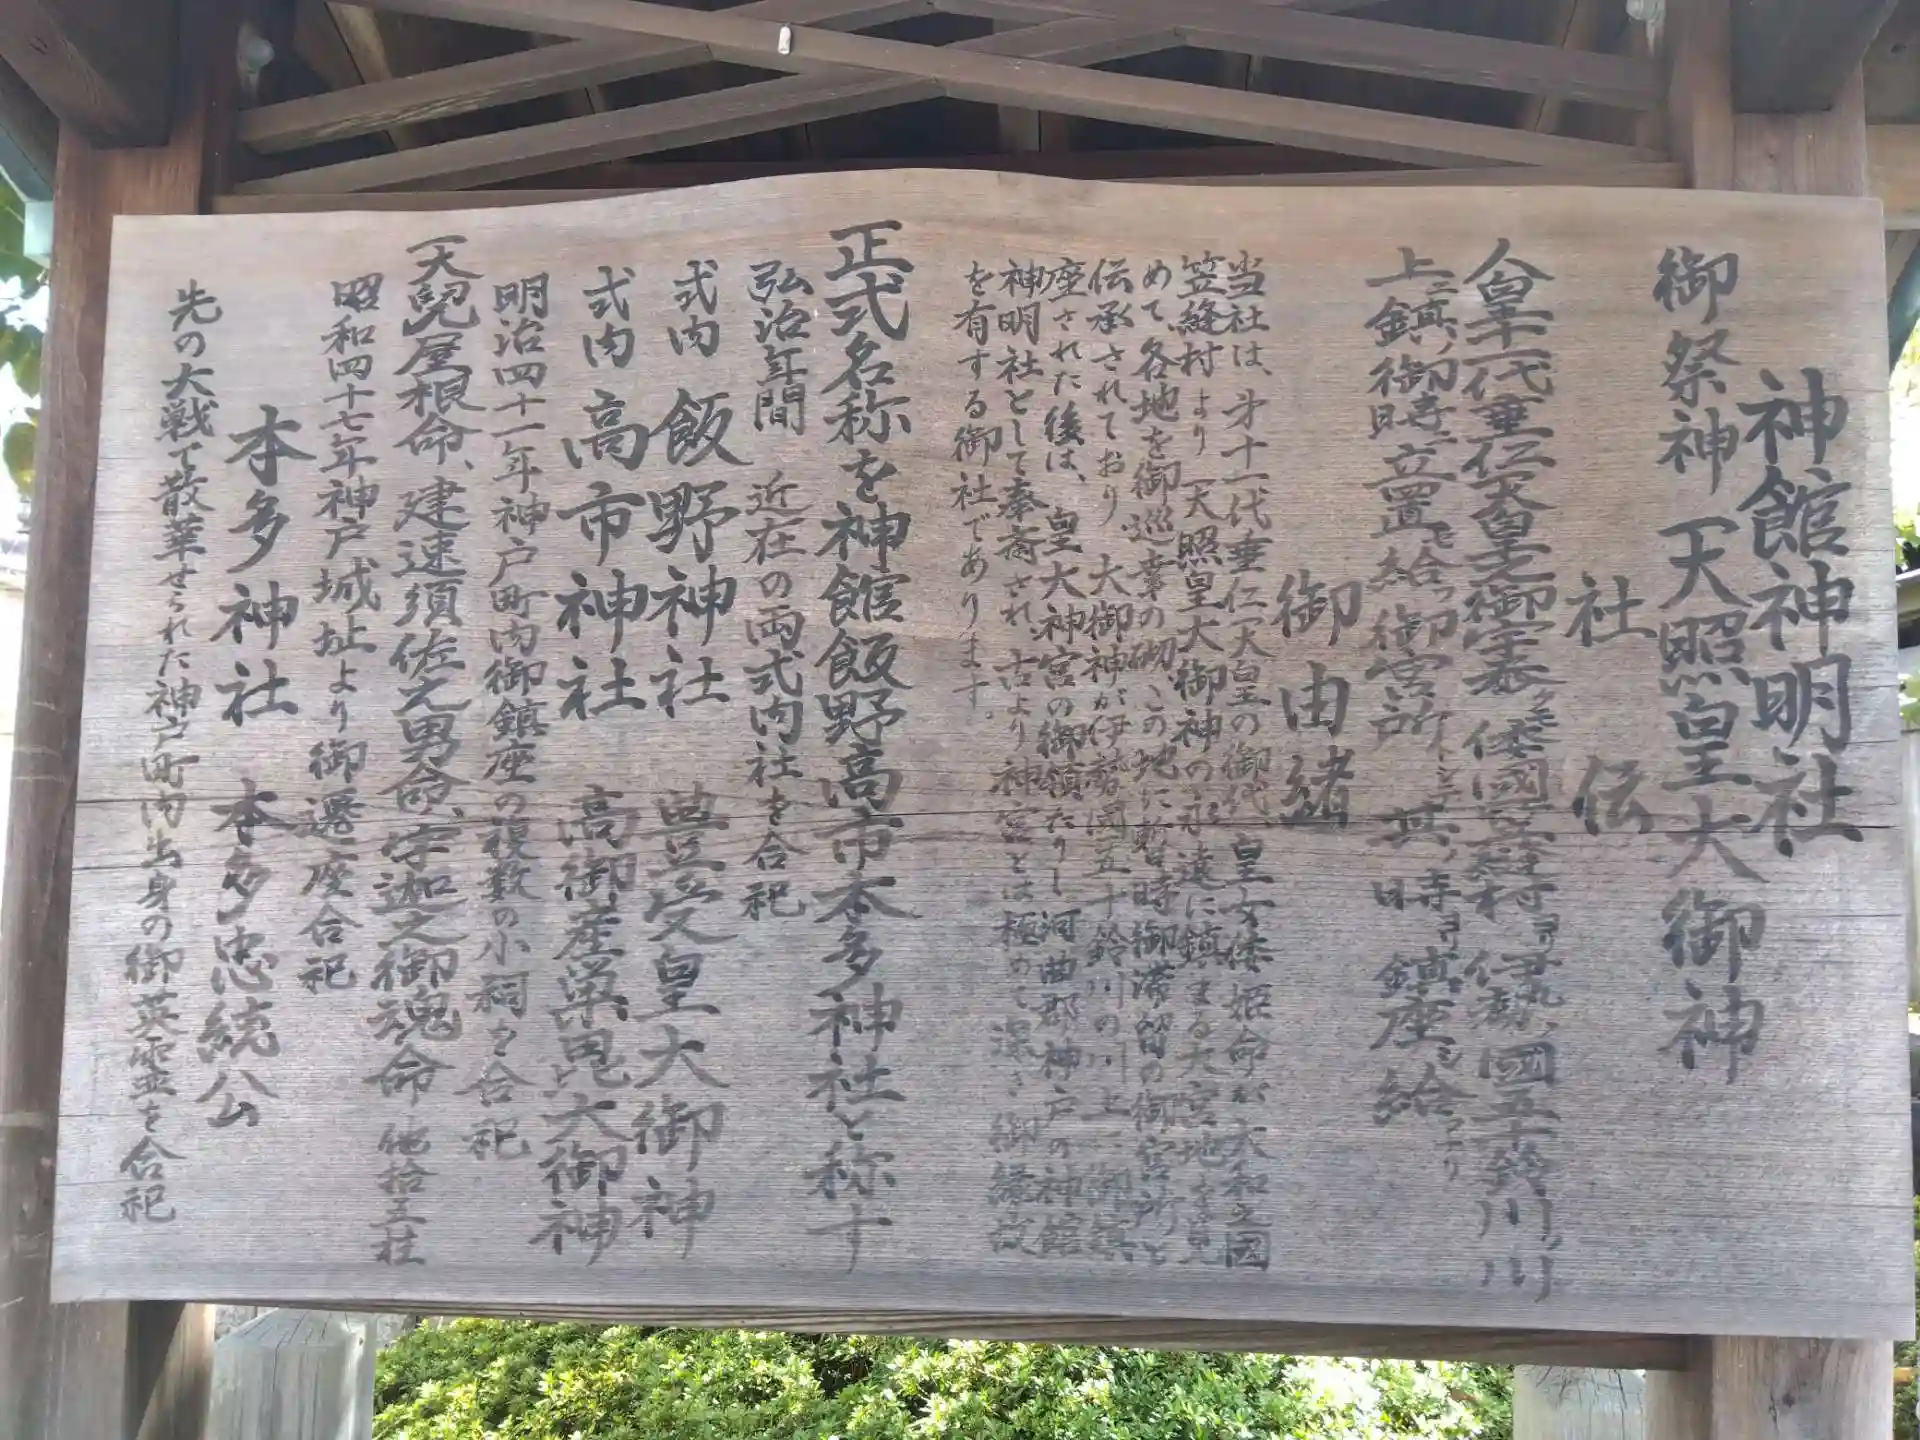 神館神明社
御祭神 天照皇大御神
社伝
人皇十一代垂仁天皇之御宇泰 倭國笠縫村ヨリ伊勢ノ國五十鈴川ノ川
上ニ鎮ノ御時ニ立置セ給フ御宮所 其ノ時ヨリ鎮座シ給
御由緒
当社は、才十一代垂仁天皇の御代、皇女倭姫命が大和之國
笠縫村より 天照皇大御神の永遠に鎮まる大宮地を見
めて、各地を御巡幸の砌、この地に暫時御滞留の御宮所と
伝承されており 大御神が伊勢國五十鈴川の川上に御鎮
座された後は、皇大神宮の御領たりし河曲郡神戸の神館
神明社として奉斎され、古より神宮とは極めて深き御縁故
を有する御社であります。
正式名称を神館飯野高市本多神社と称す
弘治年間 近在の両式内社を合祀
式内 飯野神社 豊受皇大御神
式内 高市神社 高御産巣毘大御神
明治四十一年神戸町内御鎮座の複数の小祠を合祀
天兒屋根命、建速須佐之男命、宇迦之御魂命 他拾五柱
昭和四十七年神戸城址より御遷座合祀
本多神社 本多忠統公
先の大戦で散華せられた神戸町内出身の御英霊を合祀